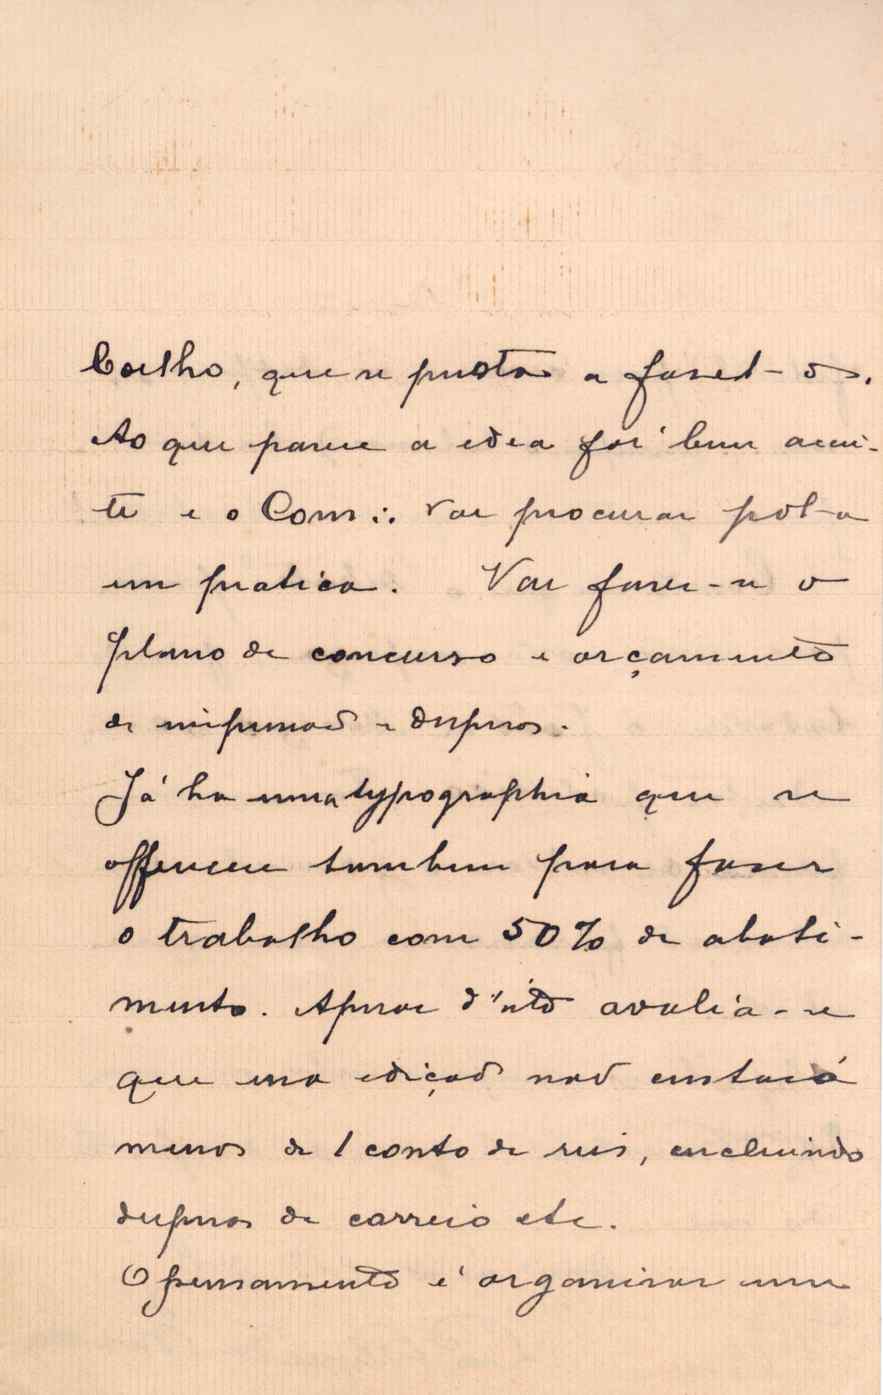 Coelho, que se presta a fazel-o.
Ao que parece a idea foi bem accei-
te e o Com∴ vae procurar pol-a
em pratica. Vae fazer-se o
plano de concurso e orçamento
de impressaõ e despezas.
Já ha uma typographia que se
offereceu tambem para fazer
o trabalho com 50% de abati-
mento. Apezar d'isto avalia-se
que uma ediçaõ naõ custará
menos de 1 conto de reis, incluindo
despezas de correio etc.
O pensamento é organizar um